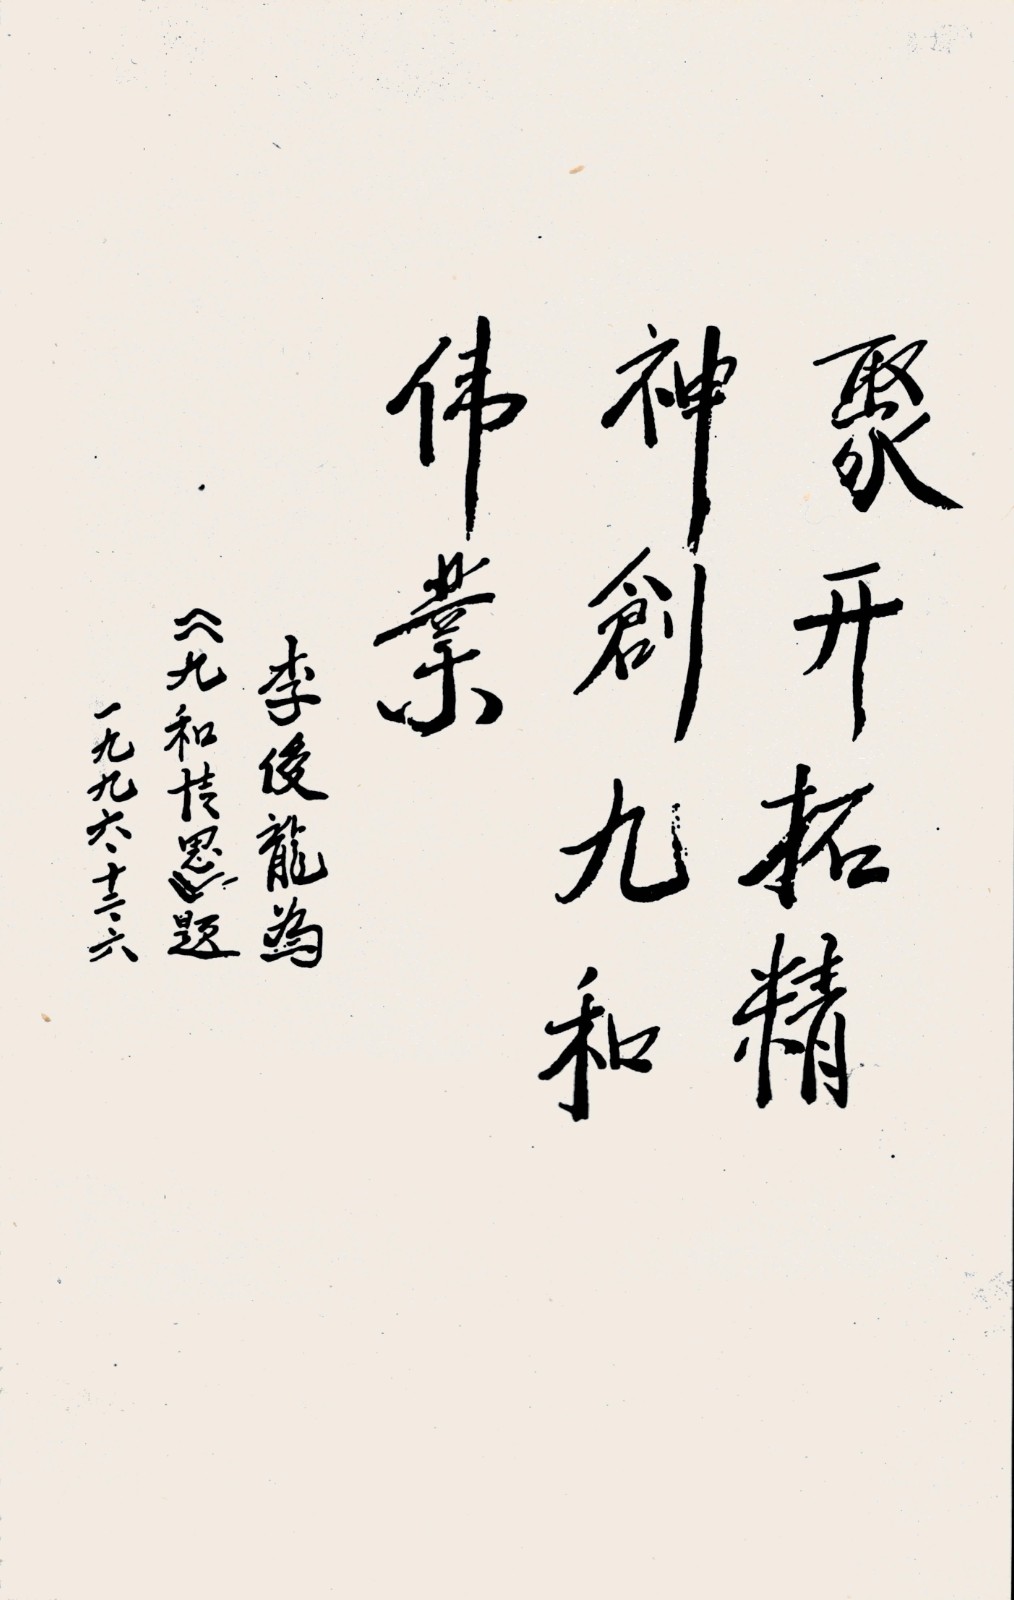 聚开拓精
神創九和
伟業
李俊龍為
《九和情思》题
一九九六、十二、六